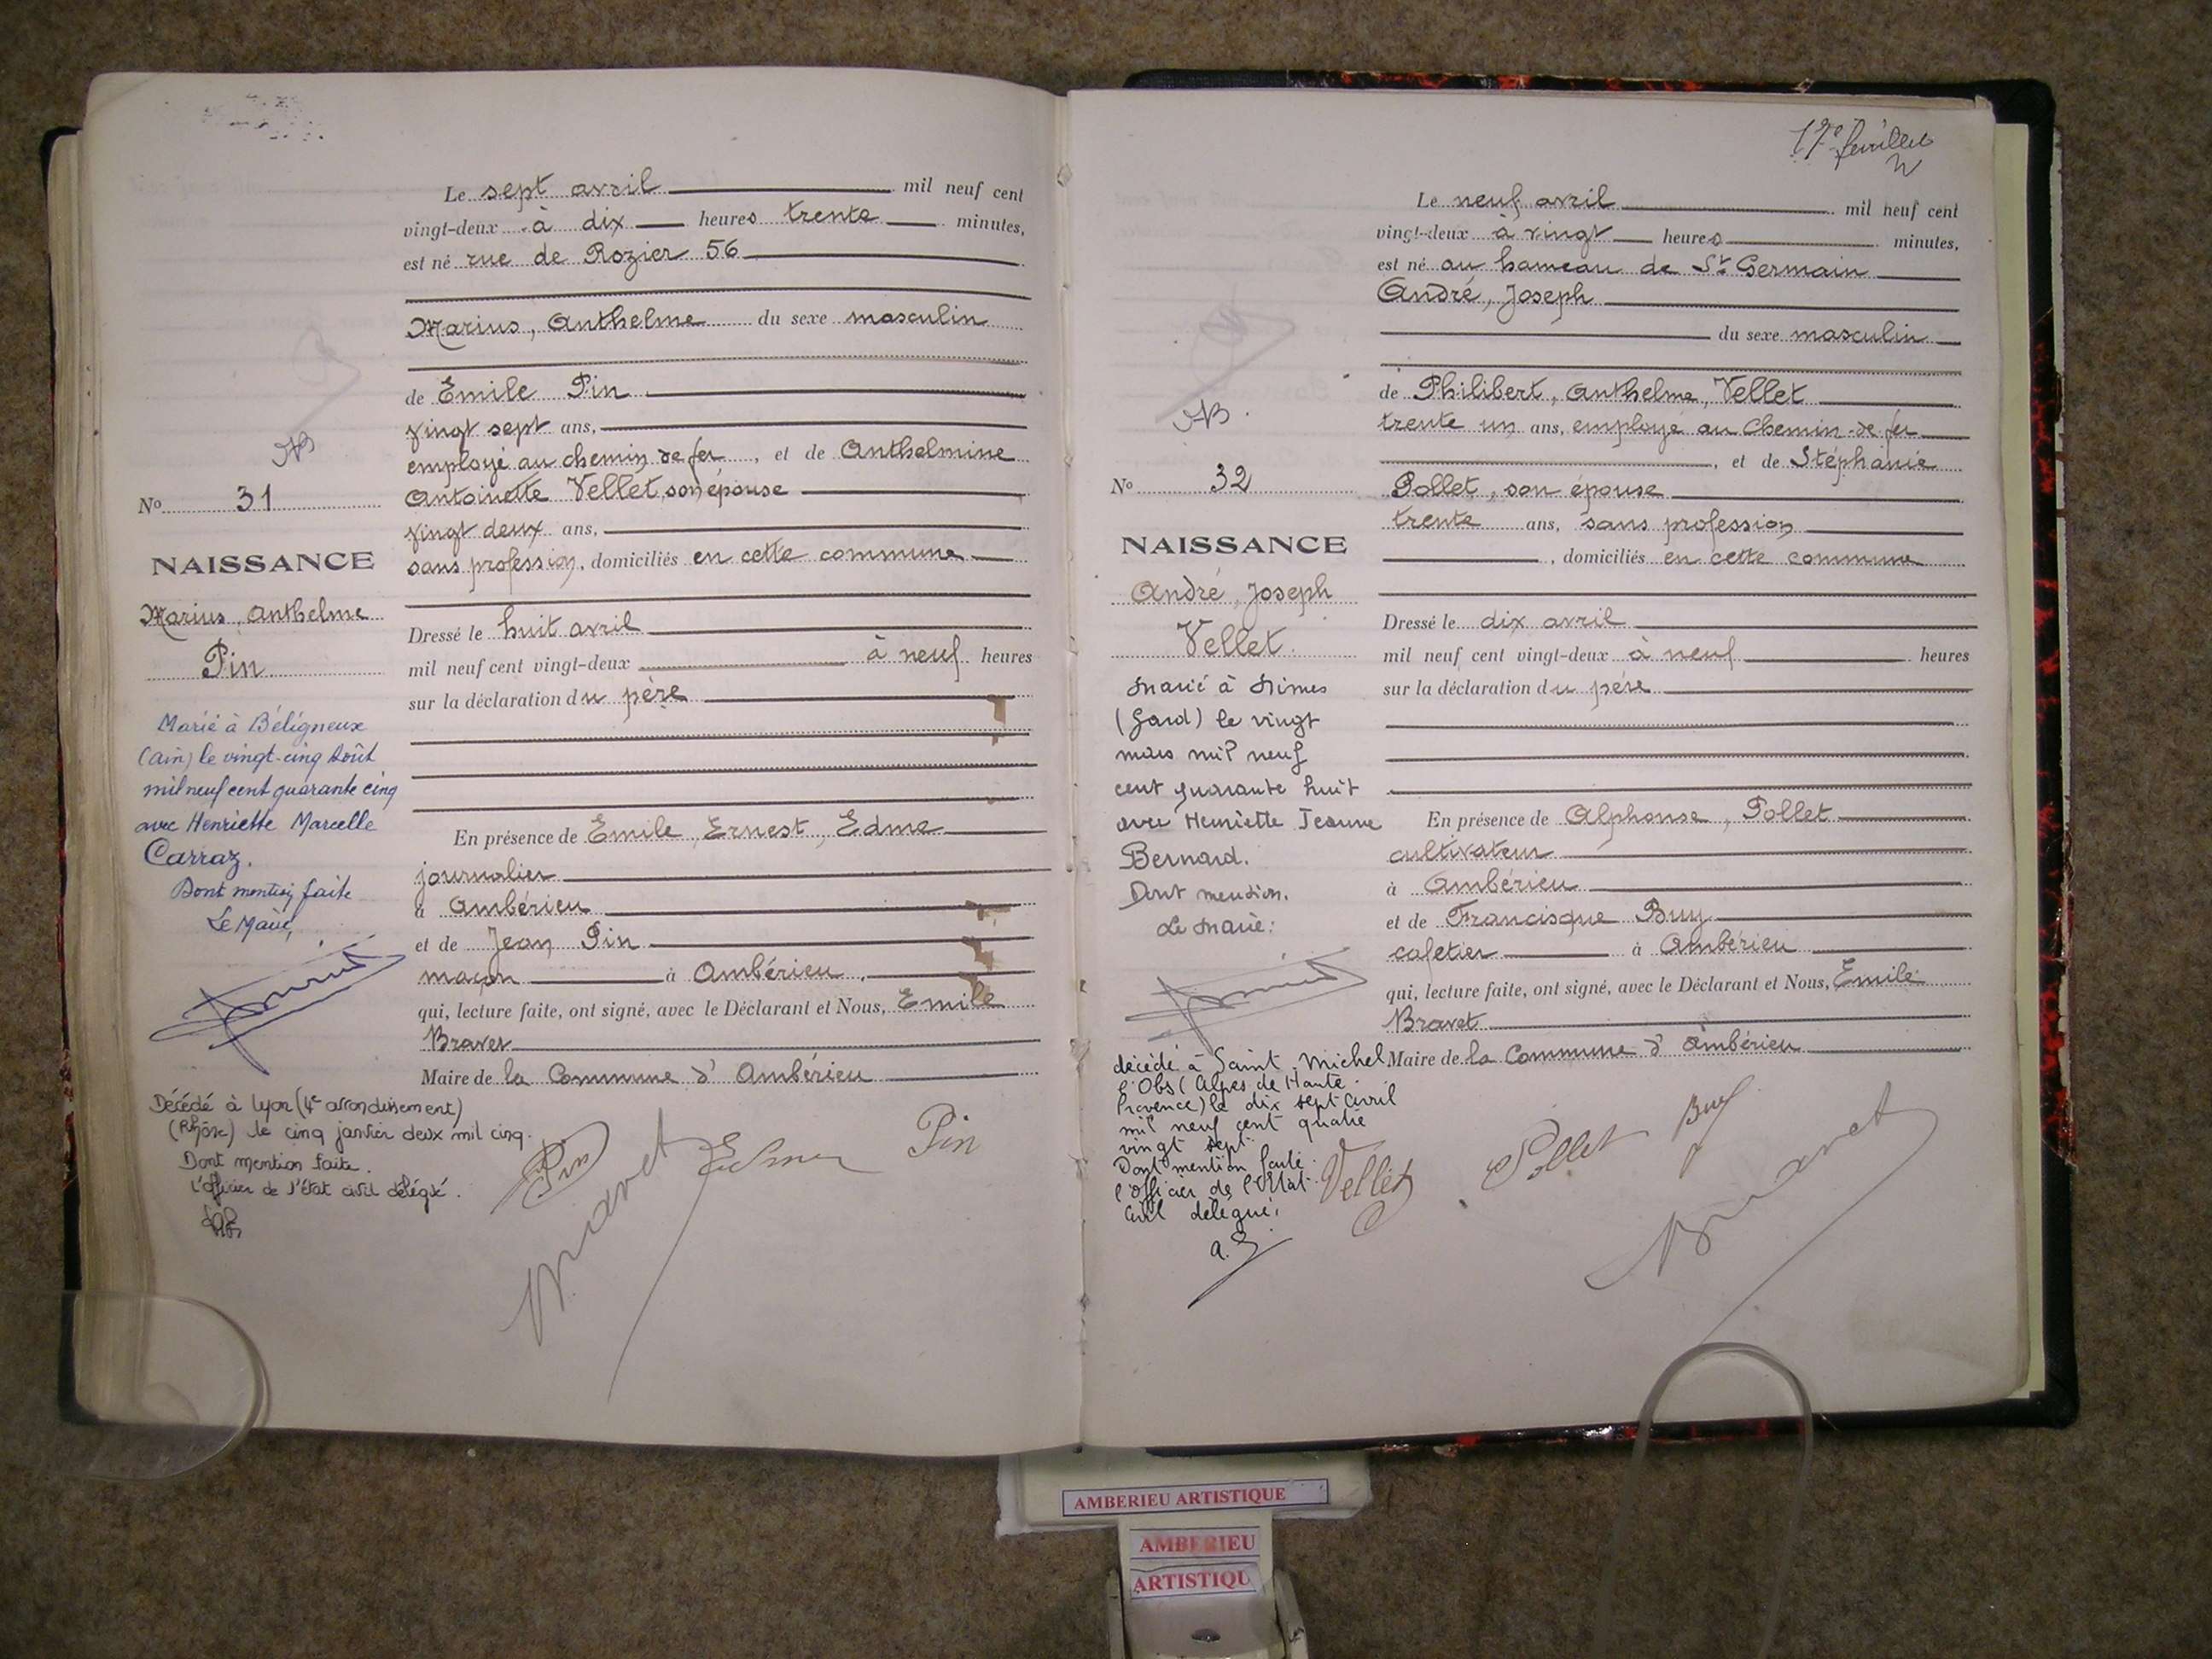 Le sept avril mil neuf cent
vingt-deux à dix heures trente minutes,
est né rue de Rozier 56
Marius, Anthelme du sexe masculin
de Emile Pin
vingt sept ans,
employé au chemin de fer, et de Anthelmine
Antoinette Vellet, son épouse
vingt deux ans,
sans profession, domiciliés en cette commune
Dressé le huit avril
mil neuf cent vingt-deux à neuf heures
sur la déclaration du père
En présence de Emile, Ernest, Edme
journalier
à Ambérieu
et de Jean Pin
maçon à Ambérieu,
qui, lecture faite, ont signé, avec le Déclarant et Nous, Emile
Bravet
Maire de la Commune d'Ambérieu
Pin
Bravet
Pin
No 31
NAISSANCE
Marius, Anthelme
Pin
Marié à Béligneux
(Ain) le vingt-cinq Août
mil neuf cent quarante cinq
avec Henriette Marcelle
Carraz.
Dont mention faite
Le Maire,
Décédé à Lyon (4e arrondissement)
(Rhône) le cinq janvier deux mil cinq.
Dont mention faite.
L'officier de l'état civil délégué.
17e feuillet
Le neuf avril mil neuf cent
vingt-deux à vingt heures minutes,
est né au hameau de St Germain
André, Joseph
du sexe masculin
de Philibert, Anthelme, Vellet
trente un ans, employé au Chemin-de-fer
, et de Stéphanie
Pollet, son épouse
trente ans, sans profession
, domiciliés en cette commune
Dressé le dix avril
mil neuf cent vingt-deux à neuf heures
sur la déclaration du père
En présence de Alphonse, Pollet
cultivateur
à Ambérieu
et de Francisque Buy
cafetier à Ambérieu
qui, lecture faite, ont signé, avec le Déclarant et Nous, Emile
Bravet
Maire de la Commune d'Ambérieu
Vellet
Pollet
Buy
Bravet
No 32
NAISSANCE
André, Joseph
Vellet.
Marié à Nîmes
(Gard) le vingt
mars mil neuf
cent quarante huit
avec Henriette Jeanne
Bernard.
Dont mention.
Le Maire:
décédé à Saint Michel
l'Obs (Alpes de Haute
Provence) le dix sept avril
mil neuf cent quatre
vingt sept.
Dont mention faite.
l'officier de l'Etat
Civil délégué,
AMBERIEU ARTISTIQUE
AMBERIEU
ARTISTIQU